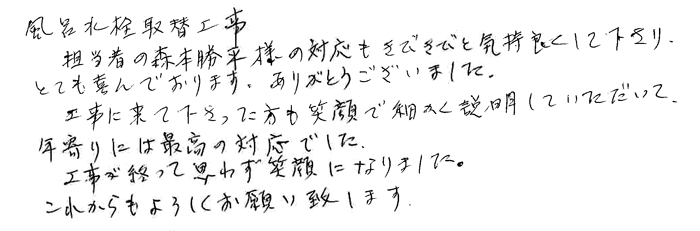 風呂水栓取替工事
担当者の森本勝平様の対応もきびきびと気持良くして下さり、
とても喜んでおります。ありがとうございました。
工事に来て下さった方も笑顔で細かく説明していただいて、
年寄りには最高の対応でした。
工事が終って思わず笑顔になりました。
これからもよろしくお願い致します。